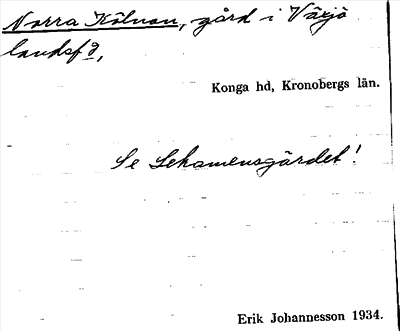 Norra Kölnon, gård i Växjö
landsf d,
Konga hd, Kronobergs län.
Se Lekamensgärdet!
Erik Johannesson 1934.